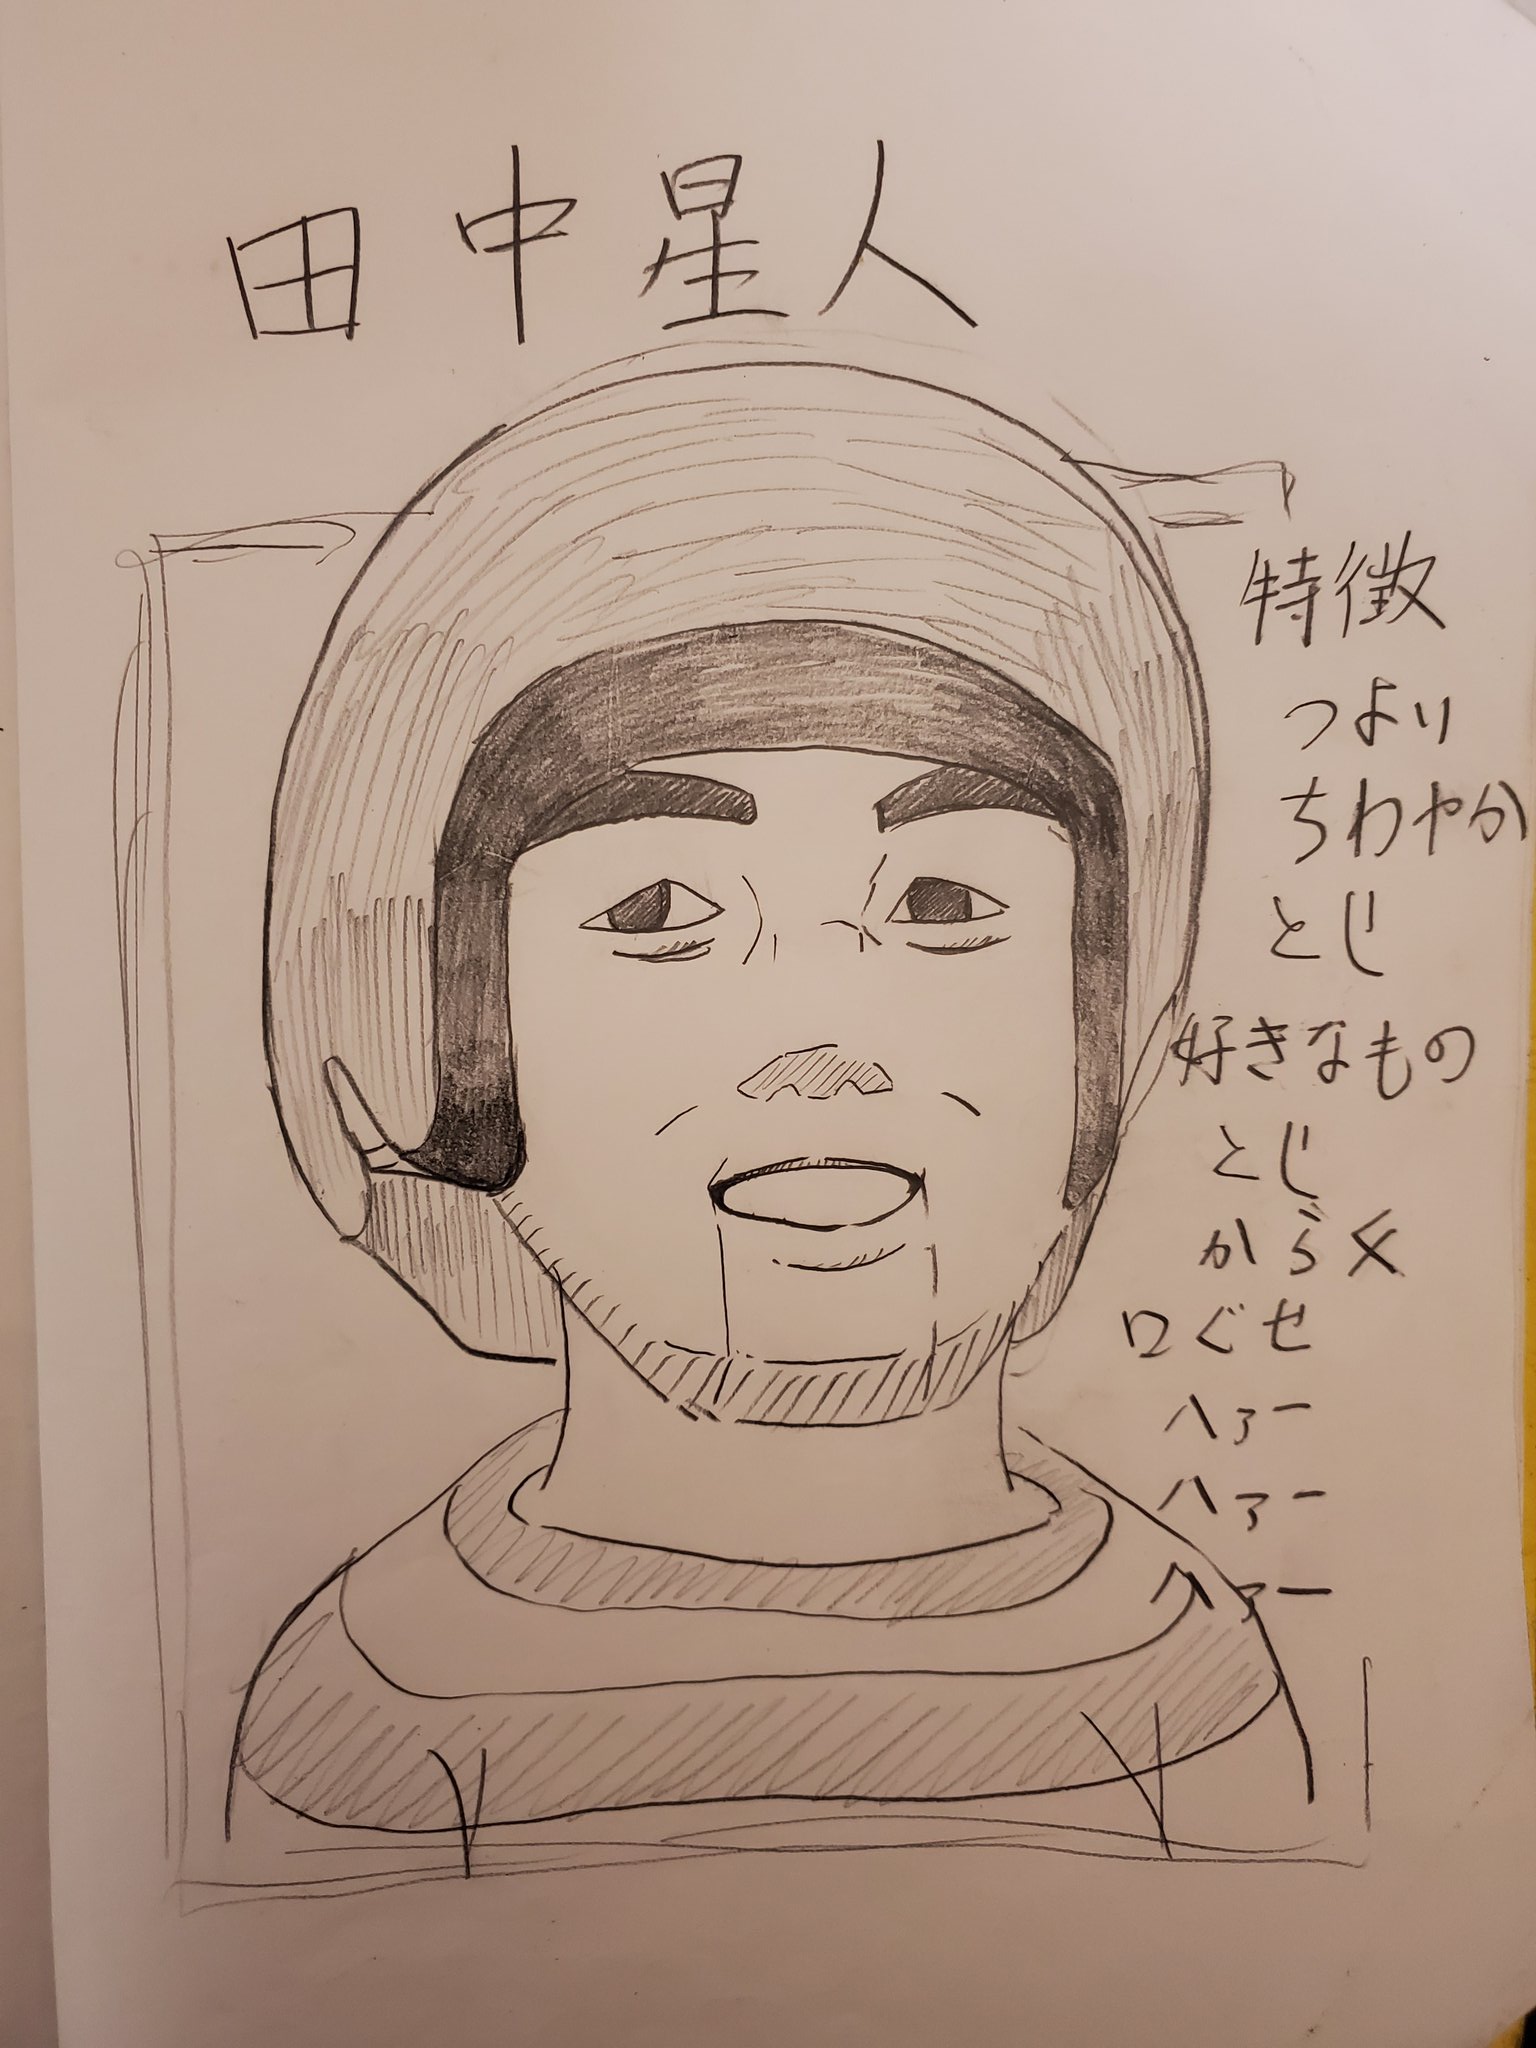 田中星人
特徴
つよい
ちわやか
とじ
好きなもの
とじ
からる
口ぐせ
ハァー
ハァー
ハァー